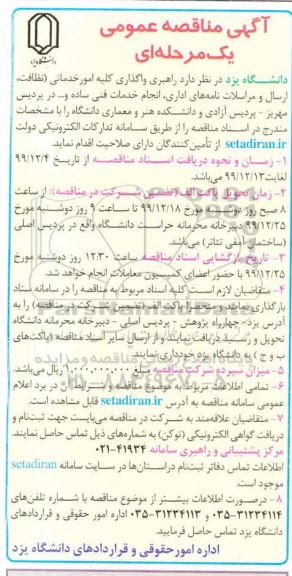 آگهی مناقصه عمومی
یک‌مرحله‌ای
دانشگاه یزد
دانشگاه یزد در نظر دارد راهبری واگذاری کلیه امورخدماتی (نظافت،
ارسال و مراسلات نامه‌های اداری، انجام خدمات فنی ساده و... در پردیس
مهریز - پردیس آزادی و دانشکده هنر و معماری دانشگاه را با مشخصات
مندرج در اسناد مناقصه را از طریق سامانه تدارکات الکترونیکی دولت
setadiran.ir از تأمین‌کنندگان دارای صلاحیت اقدام نماید.
۱- زمان و نحوه دریافت اسناد مناقصه از تاریخ ۹۹/۱۲/۴
لغایت ۹۹/۱۲/۱۳ می‌باشد.
۲- زمان تحویل پاکت الف (تضمین شرکت در مناقصه): از ساعت
۸ صبح روز دوشنبه مورخ ۹۹/۱۲/۱۸ تا ساعت ۹ روز دوشنبه مورخ
۹۹/۱۲/۲۵ (دبیرخانه محرمانه حراست دانشگاه واقع در پردیس اصلی
(ساختمان آمفی تئاتر) می‌باشد.
۳- تاریخ بازگشایی اسناد مناقصه ساعت ۱۲:۳۰ روز دوشنبه مورخ
۹۹/۱۲/۲۵ با حضور اعضای کمیسیون معاملات انجام خواهد شد.
۴- متقاضیان لازم است کلیه اسناد مربوط به مناقصه را در سامانه ستاد
بارگذاری نمایند و متحمل پاکت الف (تضمین شرکت در مناقصه) را به
آدرس یزد- چهارراه پژوهش - پردیس اصلی - دبیرخانه محرمانه دانشگاه
تحویل و رسید دریافت نمایند و از ارسال سایر اسناد مناقصه (پاکت‌های
ب و ج) به دانشگاه یزد خودداری نمایند.
۵- میزان سپرده شرکت مناقصه مبلغ ۱۰۰۰۰۰۰۰۰۰ ریال می‌باشد.
۶- تمامی اطلاعات مربوط به موضوع مناقصه و شرایط آن در برد اعلام
عمومی سامانه مناقصه به آدرس setadiran.ir قابل مشاهده است.
۷- متقاضیان علاقه‌مند به شرکت در مناقصه می‌بایست جهت ثبت‌نام و
دریافت گواهی الکترونیکی (توکن) به شماره‌های ذیل تماس حاصل نمایند.
مرکز پشتیبانی و راهبری سامانه ۴۱۹۳۴-۰۲۱
اطلاعات تماس دفاتر ثبت‌نام در استان‌ها در سایت سامانه setadiran
موجود است.
۸- درصورت اطلاعات بیشتر از موضوع مناقصه با شماره تلفن‌های
۳۱۲۳۴۱۱۴-۰۳۵ و ۳۱۲۳۴۱۱۳-۰۳۵ اداره امور حقوقی و قراردادهای
دانشگاه یزد تماس حاصل فرمایید.
اداره امورحقوقی و قراردادهای دانشگاه یزد